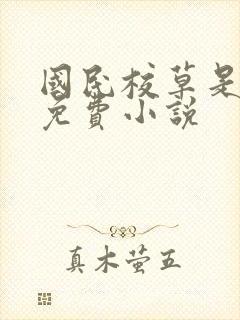 國民校草是
免費小說
真木萤五